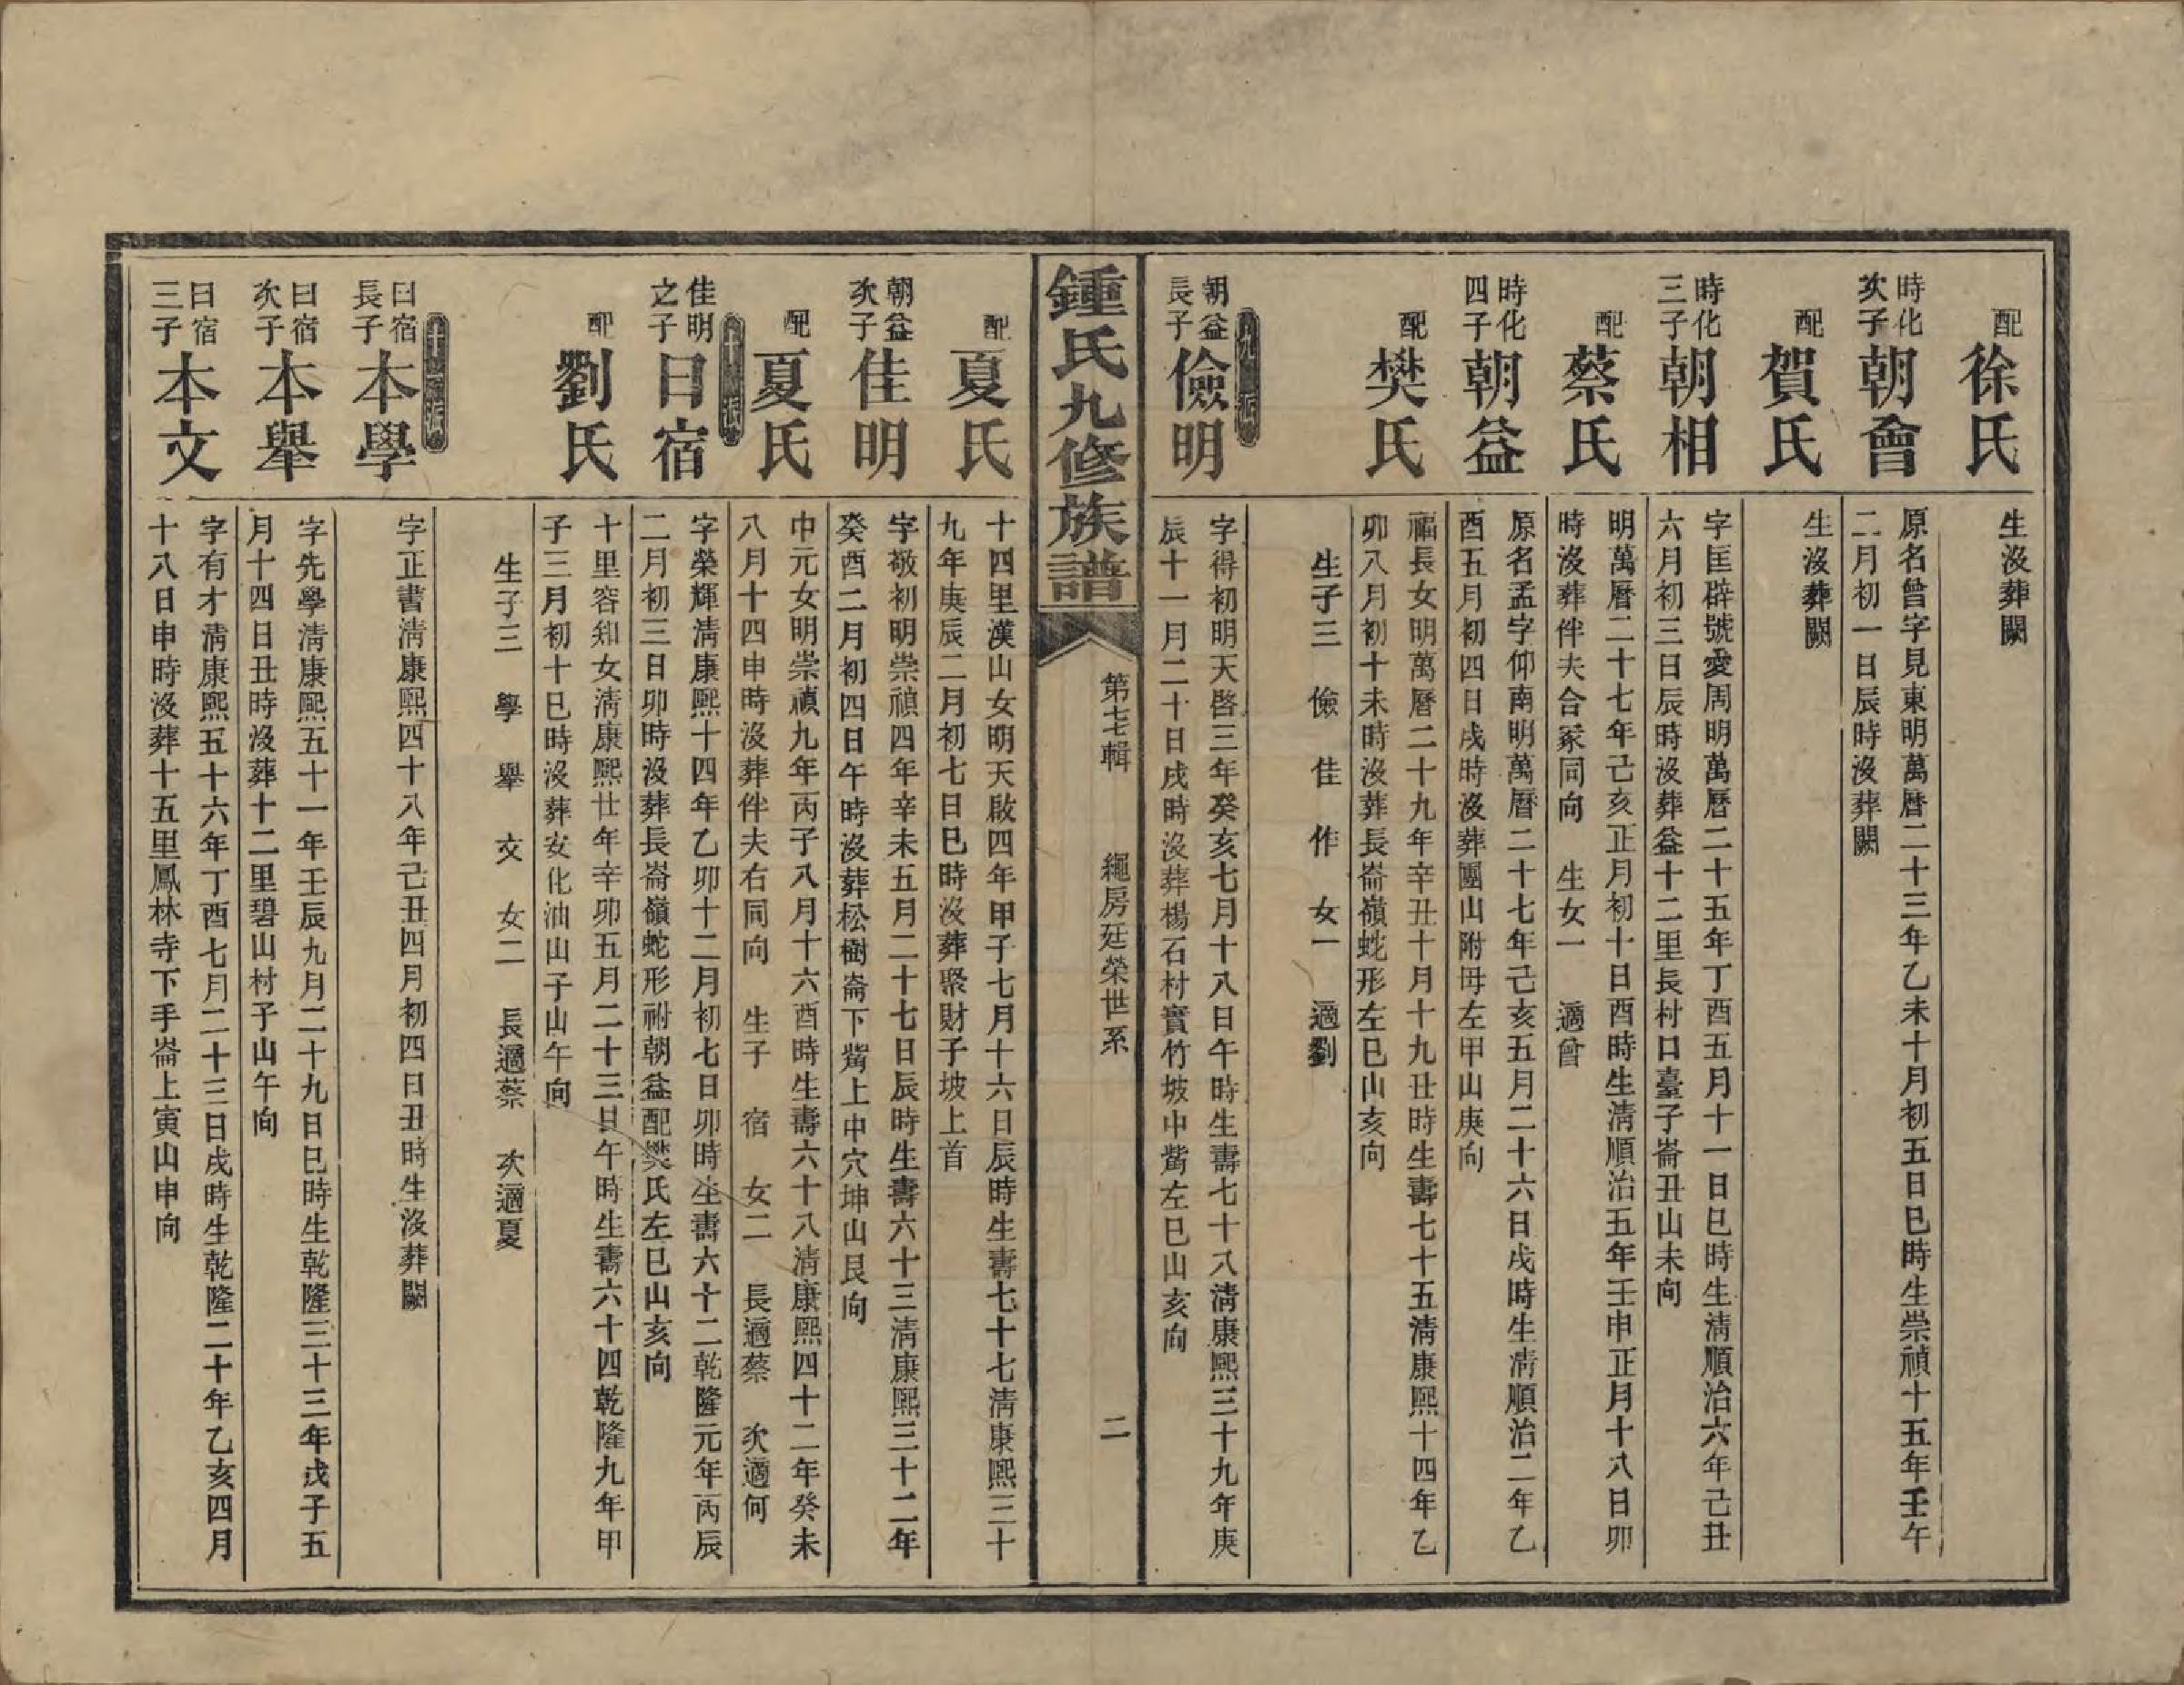 配
徐氏
生沒葬闕
時化
次子
朝會
原名曾字見東明萬曆二十三年乙未十月初五日巳時生崇禎十五年壬午
二月初一日辰時沒葬闕
配
賀氏
生沒葬闕
時化
三子
朝相
字匡辟號愛周明萬曆二十五年丁酉五月十一日巳時生淸順治六年己丑
六月初三日辰時沒葬益十二里長村口臺子崙丑山未向
配
蔡氏
明萬曆二十七年己亥正月初十日酉時生淸順治五年壬申正月十八日卯
時沒葬伴夫合冢同向　生女一　適曾
時化
四子
朝益
原名孟字仰南明萬曆二十七年己亥五月二十六日戌時生淸順治二年乙
酉五月初四日戌時沒葬團山附毋左甲山庚向
配
樊氏
福長女明萬曆二十九年辛丑十月十九丑時生壽七十五淸康熙十四年乙
卯八月初十未時沒葬長崙嶺蛇形左巳山亥向
生子三　儉　佳　作　女一　適劉
朝益
長子
儉明
字得初明天啓三年癸亥七月十八日午時生壽七十八淸康熙三十九年庚
辰十一月二十日戌時沒葬楊石村實竹坡中觜左巳山亥向
鍾氏九修族譜
第七輯
繩房廷榮世系
二
配
夏氏
十四里漢山女明天啟四年甲子七月十六日辰時生壽七十七淸康熙三十
九年庚辰二月初七日巳時沒葬聚財子坡上首
朝益
次子
佳明
字敬初明崇禎四年辛未五月二十七日辰時生壽六十三淸康熙三十二年
癸酉二月初四日午時沒葬松樹崙下觜上中穴坤山艮向
配
夏氏
中元女明崇禎九年丙子八月十六酉時生壽六十八淸康熙四十二年癸未
八月十四申時沒葬伴夫右同向　生子　宿　女二　長適蔡　次適何
佳明
之子
日宿
字榮輝淸康熙十四年乙卯十二月初七日卯時生壽六十二乾隆元年丙辰
二月初三日卯時沒葬長崙嶺蛇形祔朝益配樊氏左巳山亥向
配
劉氏
十里容知女淸康熙廿年辛卯五月二十三日午時生壽六十四乾隆九年甲
子三月初十巳時沒葬安化油山子山午向
生子三　學　舉　文　女二　長適蔡　次適夏
日宿
長子
本學
字正書淸康熙四十八年己丑四月初四日丑時生沒葬闕
日宿
次子
本舉
字先學淸康熙五十一年壬辰九月二十九日巳時生乾隆三十三年戊子五
月十四日丑時沒葬十二里碧山村子山午向
日宿
三子
本文
字有才淸康熙五十六年丁酉七月二十三日戌時生乾隆二十年乙亥四月
十八日申時沒葬十五里鳳林寺下手崙上寅山申向